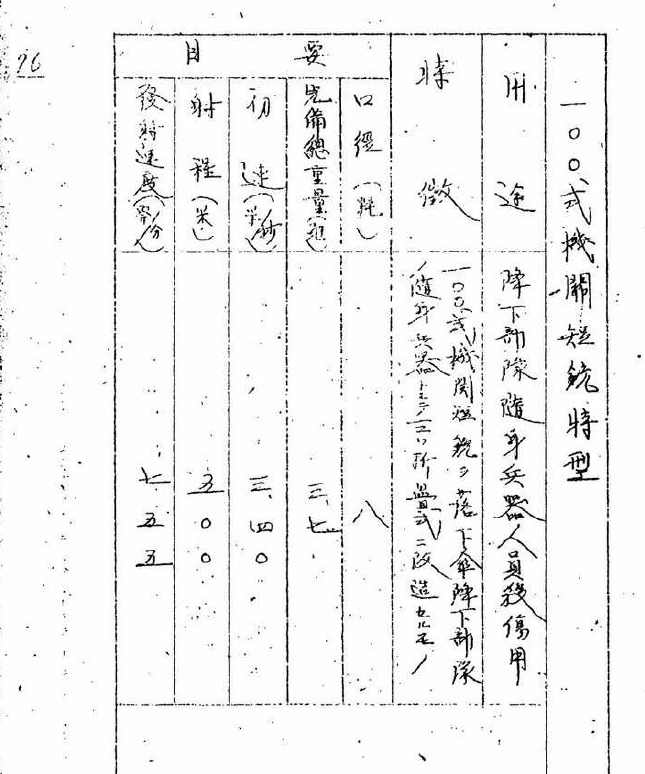 一〇〇式機關短銃特型
用途
降下部隊随身兵器人員殺傷用
特徴
一〇〇式機関短銃ヲ落下傘降下部隊
ノ随身兵器トシテ折畳式ニ改造セルモノ
要目
口径(粍)
八
完備總重量(瓩)
三、七
初速(米/秒)
三四〇
射程(米)
五〇〇
發射速度(發/分)
七五五
26